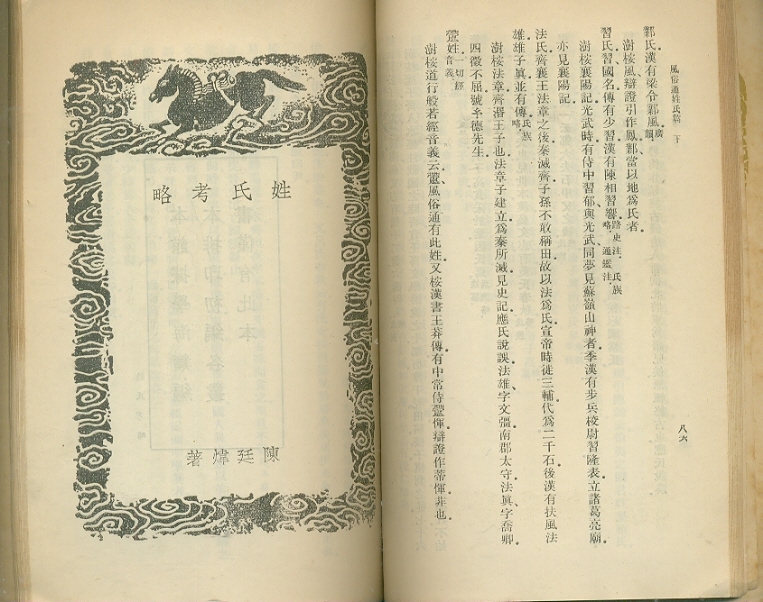 風俗通姓氏篇 下
鄴氏漢有梁令鄴風。廣韻。
澍桉風辯證引作鳳鄴當以地爲氏者。
習氏習國名傳有少習漢有陳相習響。路史注、氏族略、通鑑注。
澍桉襄陽記光武時有侍中習郁與光武同夢見蘇嶺山神者季漢有步兵校尉習隆表立諸葛亮廟。
亦見襄陽記。
法氏齊襄王法章之後秦滅齊子孫不敢稱田故以法爲氏宣帝時徙三輔代爲二千石後漢有扶風法
雄雄子眞並有傳。氏族略。
澍桉法章齊湣王子也法章子建立爲秦所滅見史記應氏說誤法雄、字文彊南郡太守法眞字喬卿。
四徵不屈號玄德先生。
姓。切經音義
澍桉道行般若經音義云風俗通有此姓又桉漢書王莽傳有中常侍惲辯證作蒂惲非也。
八六
姓氏考略
陳廷煒著